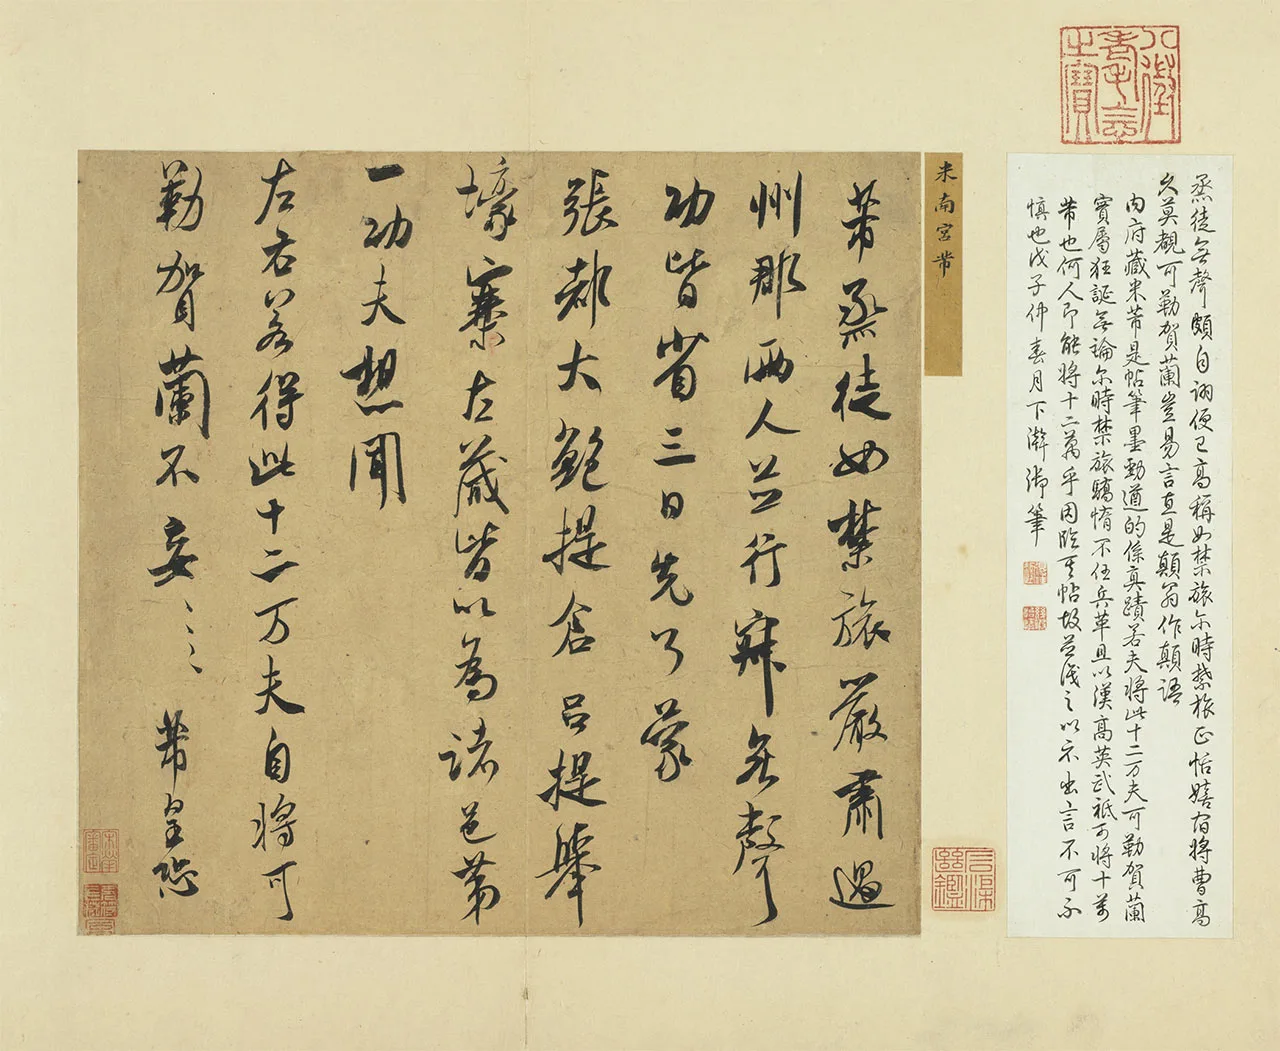 八徵耄念之寶
烝徒無聲頗自詡便已高稱如禁旅尔時禁旅正恬嬉宿將曹高
久莫覩可勒賀蘭豈易言直是顛翁作顛語
内府藏米芾是帖筆墨勁遒的係真蹟若夫將此十二万夫可勒賀蘭
實屬狂誕無論尔時禁旅驕惰不任兵革且以漢高英武祗可將十萬
芾也何人即能將十二萬乎因臨是帖故並識之以示出言不可不
慎也戊子仲春月下澣御筆
米南宮芾
芾烝徒如禁旅嚴肅過
州郡兩人並行寂無聲
功皆省三日先了蒙
張都大鮑提倉呂提舉
壕寨左藏皆以為諸邑第
一功夫想聞
左右若得此十二万夫自將可
勒賀蘭不妄〻〻芾皇恐